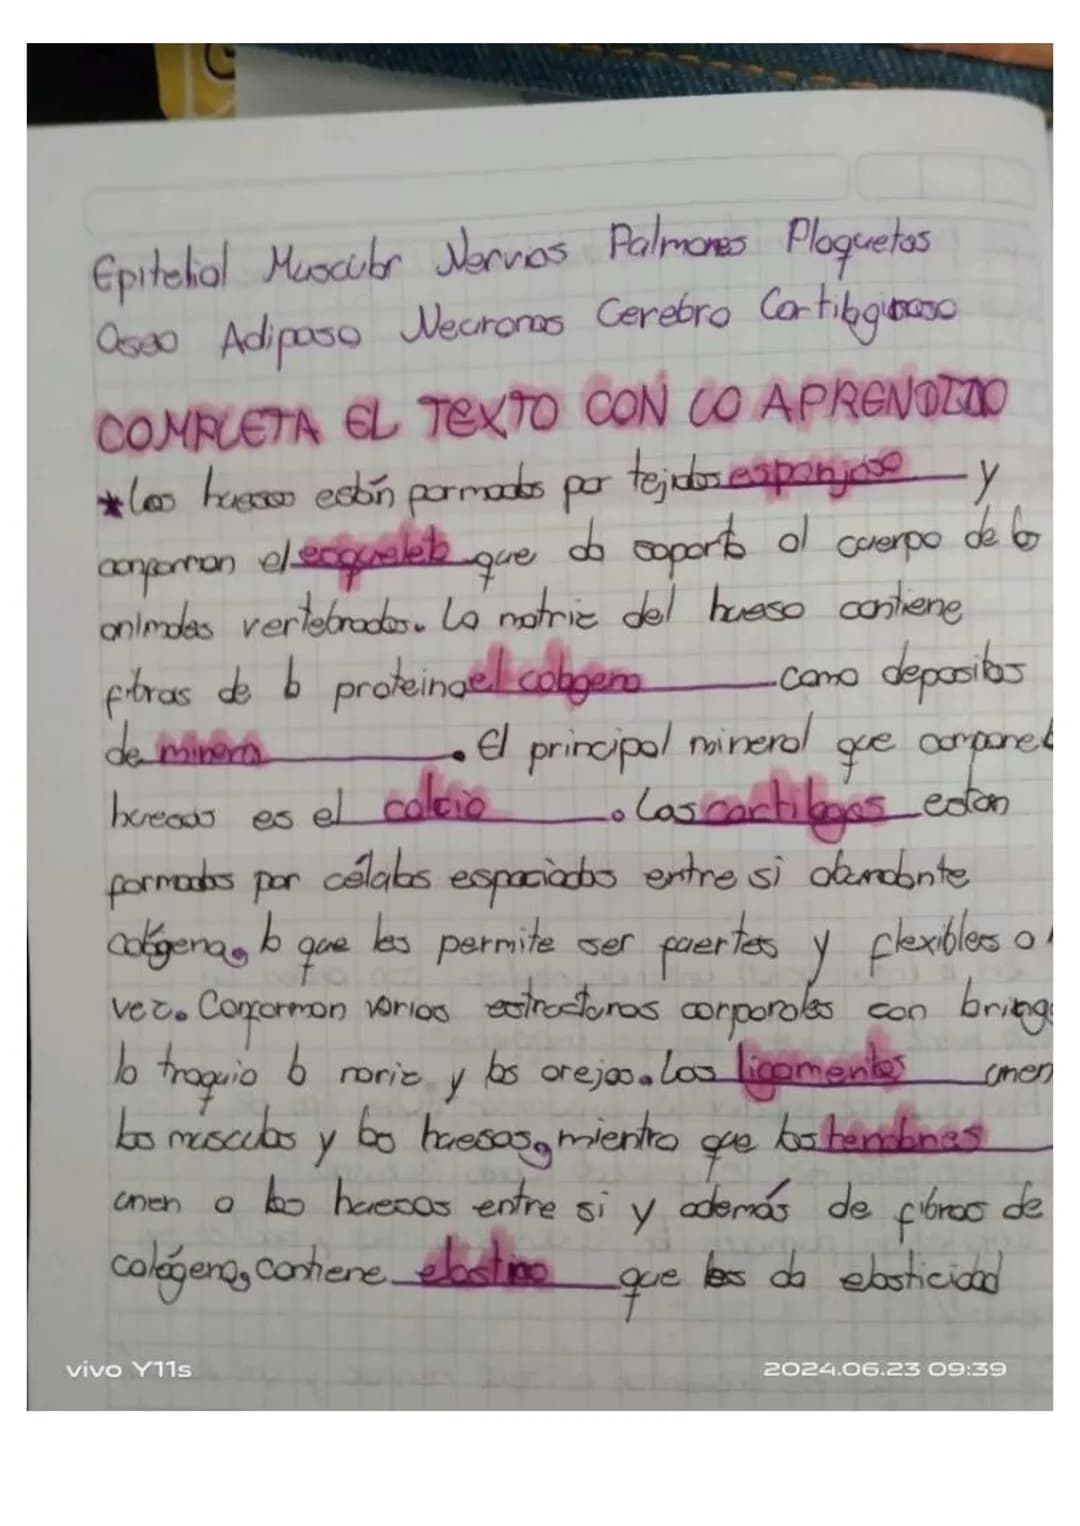 Epitelial Muscular Nervios Palmones Plaquetas
Oseo Adiposo Neuronas Cerebro Cartilaginoso
COMPLETA EL TEXTO CON LO APRENDIDO
*Los huesos están formados por tejidos esponjoso y
conforman el esqueleto que da soporte al cuerpo de los
animales vertebrados. La matriz del hueso contiene
fibras de la proteina el colageno como depositos
de minera. El principal mineral que compone
huesos es el calcio. Los cartilagos estan
formados por célalas espaciadas entre si abundante
colágeno, lo que les permite ser fuertes y flexibles a
vez. Conforman varias estructuras corporales con
la traquia la nariz y las orejas. Los ligamentos unen
los musculos y los huesos, mientra que los tendones
unen a los huesos entre si y además de fibras de
colágeno, contiene elastina que les da elasticidad
vivo Y11s
2024.06.23 09:39